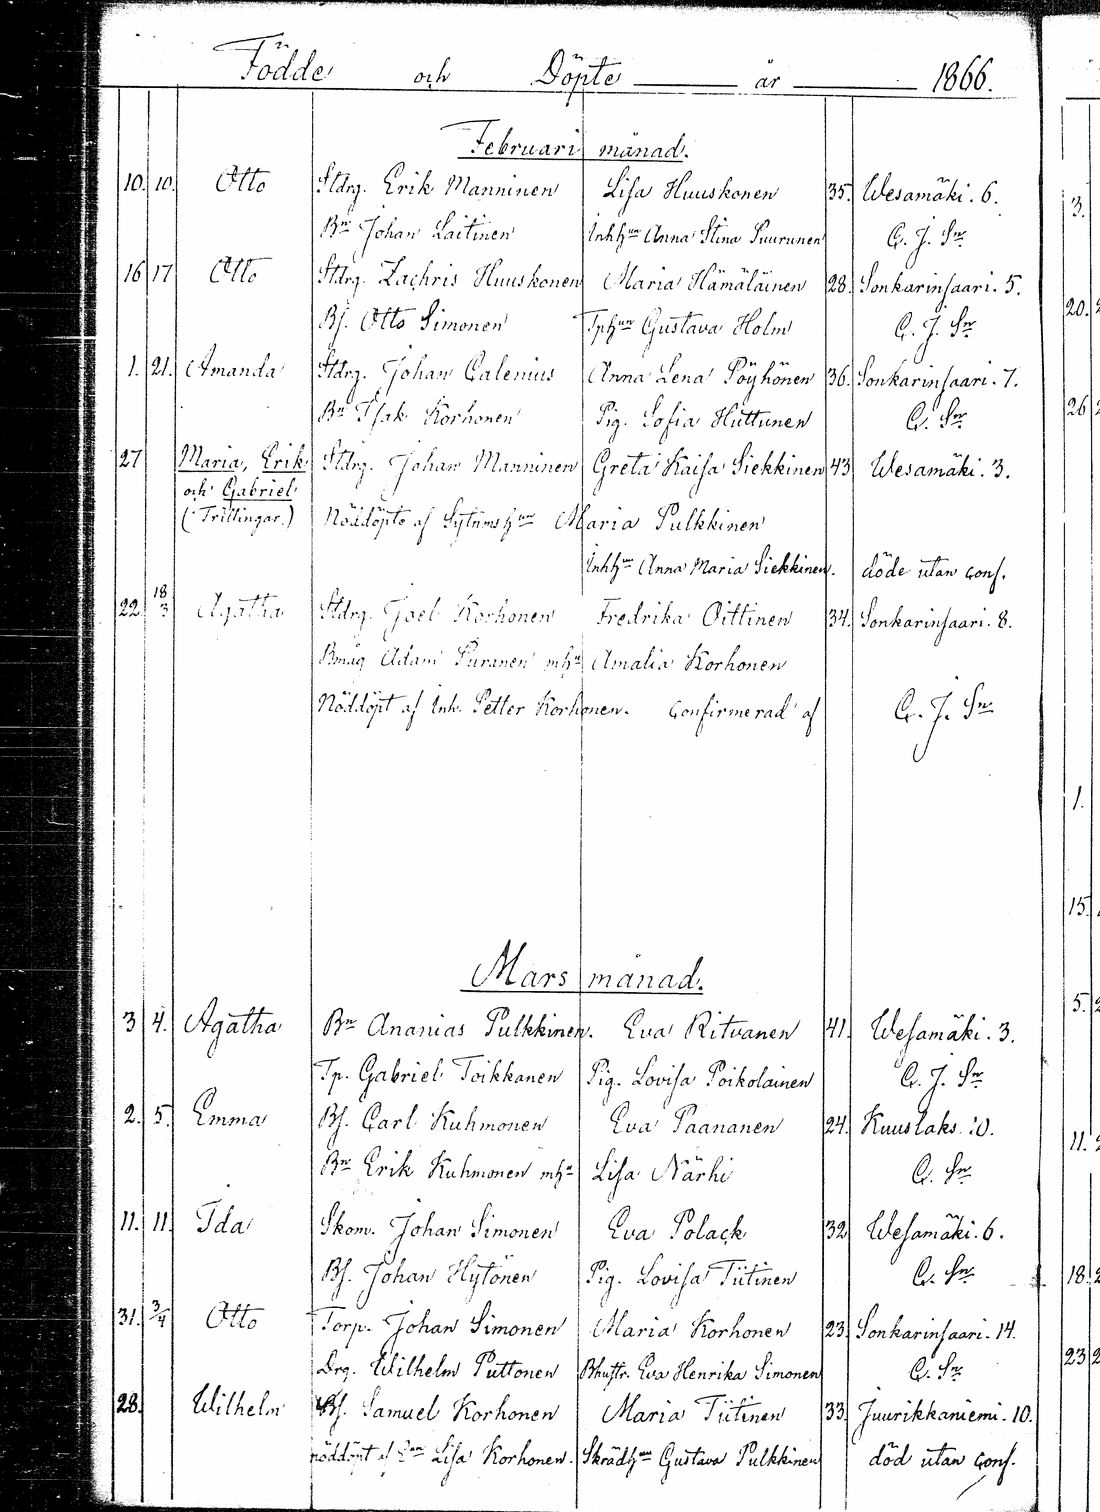 Födde och Döpte år 1866.
Februari månad.
10. 10. Otto Stdrg. Erik Manninen Lisa Huuskonen 35. Wesamäki. 6.
Bn Johan Laitinen Inhhun Anna Stina Suurunen C. J. Sn
16 17 Otto Stdrg. Zachris Huuskonen Maria Hämäläinen 28. Sonkarinsaari. 5.
Bs. Otto Simonen Tphun Gustava Holm C. J. Sn
1. 21. Amanda Stdrg. Johan Calenius Anna Lena Pöyhönen 36. Sonkarinsaari. 7.
Bn Isak Korhonen Pig. Sofia Huttunen C. Sn
27 Maria, Erik Stdrg. Johan Manninen Greta Kaisa Siekkinen 43 Wesamäki. 3.
och Gabriel
(Trillingar.) Nöddöpte af Sytnmshun Maria Pulkkinen
Inhhun Anna Maria Siekkinen. döde utan conf.
22 18/3 Agatha Stdrg. Joel Korhonen Fredrika Oittinen 34. Sonkarinsaari. 8.
Bmåg Adam Puranen mhu Amalia Korhonen
Nöddöpt af Inh. Petter Korhonen. Confirmerad af C. J. Sn
Mars månad.
3 4. Agatha Bn Ananias Pulkkinen. Eva Ritvanen 41. Wesamäki. 3.
Tp. Gabriel Toikkanen Pig. Lovisa Poikolainen C. J. Sn
2. 5. Emma Bs. Carl Kuhmonen Eva Paananen 24. Kuuslaks. 10.
Bn Erik Kuhmonen mhu Lisa Närhi C. Sn
11. 11. Ida Skom. Johan Simonen Eva Polack 32 Wesamäki. 6.
Bs. Johan Hytönen Pig. Lovisa Tiitinen C. Sn
31. 3/4 Otto Torp. Johan Simonen Maria Korhonen 23. Sonkarinsaari. 14.
Drg. Wilhelm Puttonen Bhustr. Eva Henrika Simonen C. Sn
28. Wilhelm Bs. Samuel Korhonen Maria Tiitinen 33. Juurikkaniemi. 10.
nöddöpt af Lisa Korhonen. Skrädhun Gustava Pulkkinen död utan conf.